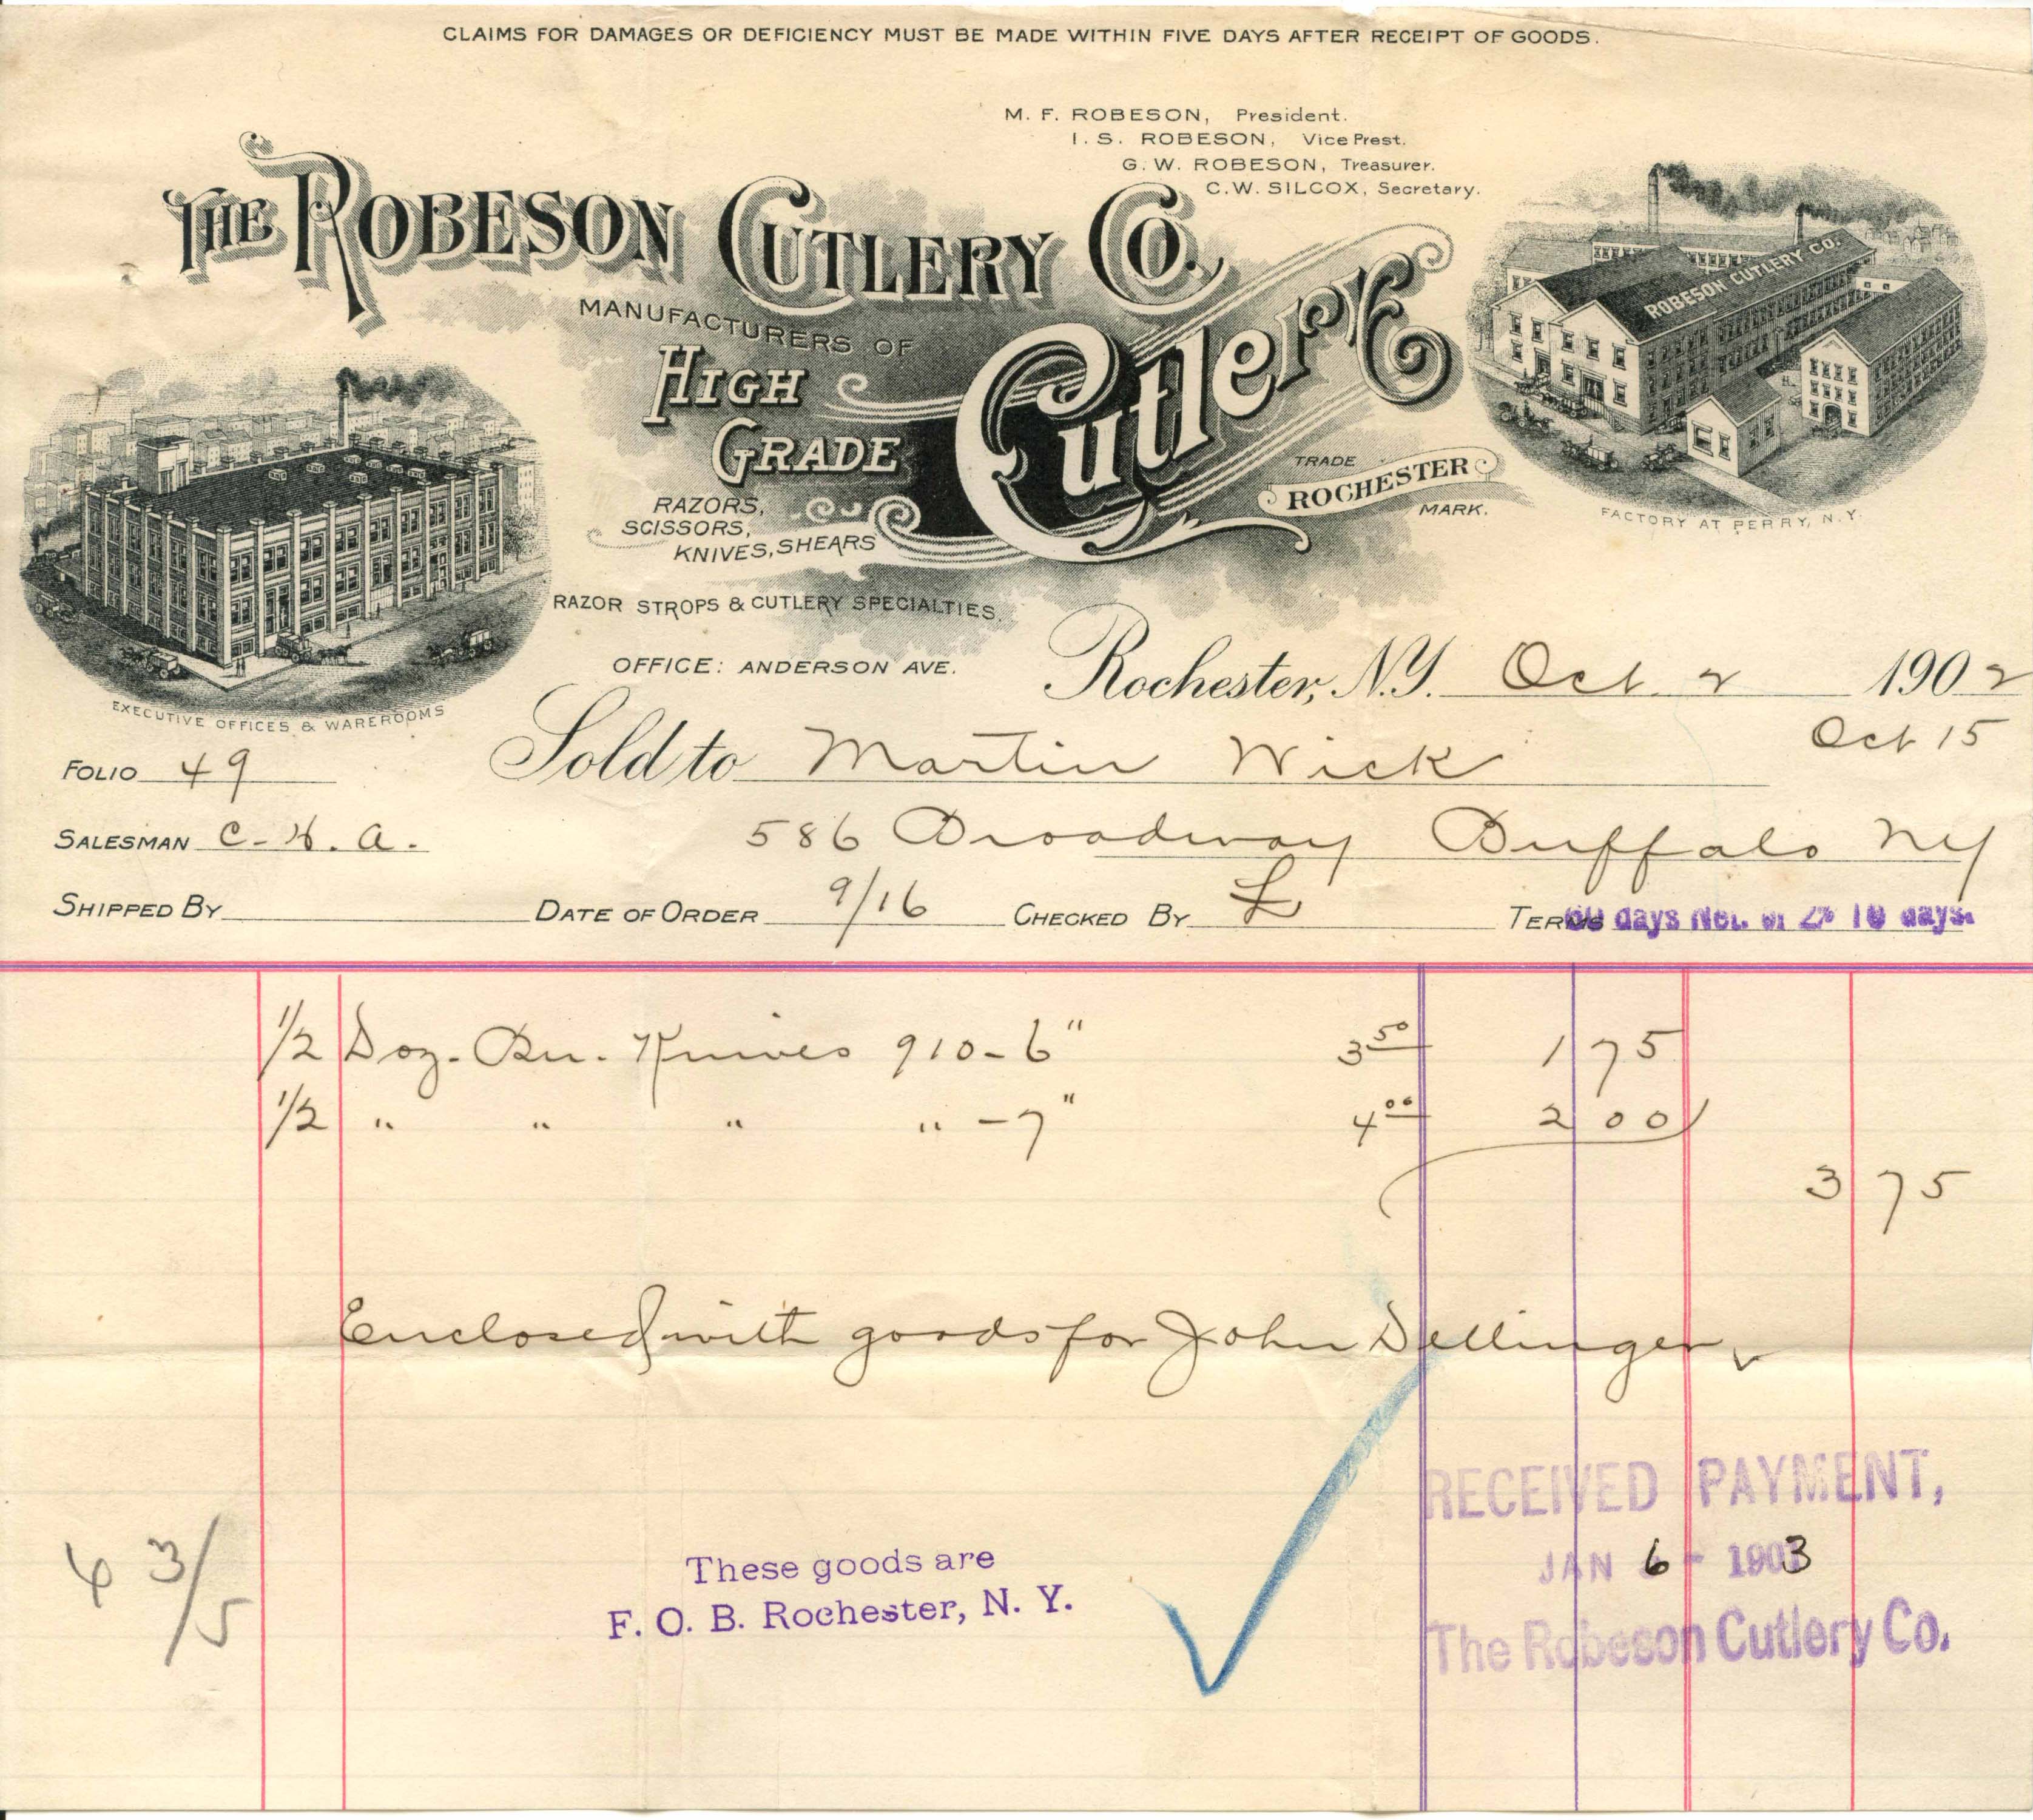 CLAIMS FOR DAMAGES OR DEFICIENCY MUST BE MADE WITHIN FIVE DAYS AFTER RECEIPT OF GOODS.
M. F. ROBESON, President.
I. S. ROBESON, Vice Prest.
G. W. ROBESON, Treasurer.
C. W. SILCOX, Secretary.
THE ROBESON CUTLERY CO.
MANUFACTURERS OF
HIGH GRADE Cutlery
ROBESON CUTLERY CO.
RAZORS,
SCISSORS,
KNIVES, SHEARS
RAZOR STROPS & CUTLERY SPECIALTIES.
TRADE
ROCHESTER
MARK.
FACTORY AT PERRY, N.Y.
EXECUTIVE OFFICES & WAREROOMS
OFFICE: ANDERSON AVE.
Rochester, N.Y. Oct 2 1902
Oct 15
FOLIO 49
Sold to Martin Wick
SALESMAN C. H. A.
586 Broadway Buffalo NY
SHIPPED BY DATE OF ORDER 9/16 CHECKED BY TERMS days Net. or 2% 10 days.
1/2 Doz. Bu. Knives 910-6" 3 50 1 75
1/2 " " " " -7" 4 00 2 00
3 75
Enclosed with goods for John Dellinger
RECEIVED PAYMENT,
JAN 6 - 1903
The Robeson Cutlery Co.
These goods are
F. O. B. Rochester, N. Y.
43/5